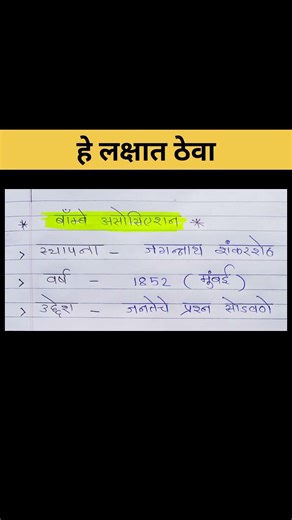 हे लक्षात ठेवा
* बॉम्बे असोसिएशन *
> स्थापना - जगन्नाथ शंकरशेठ
> वर्ष - 1852 ( मुंबई )
> उद्देश - जनतेचे प्रश्न सोडवणे